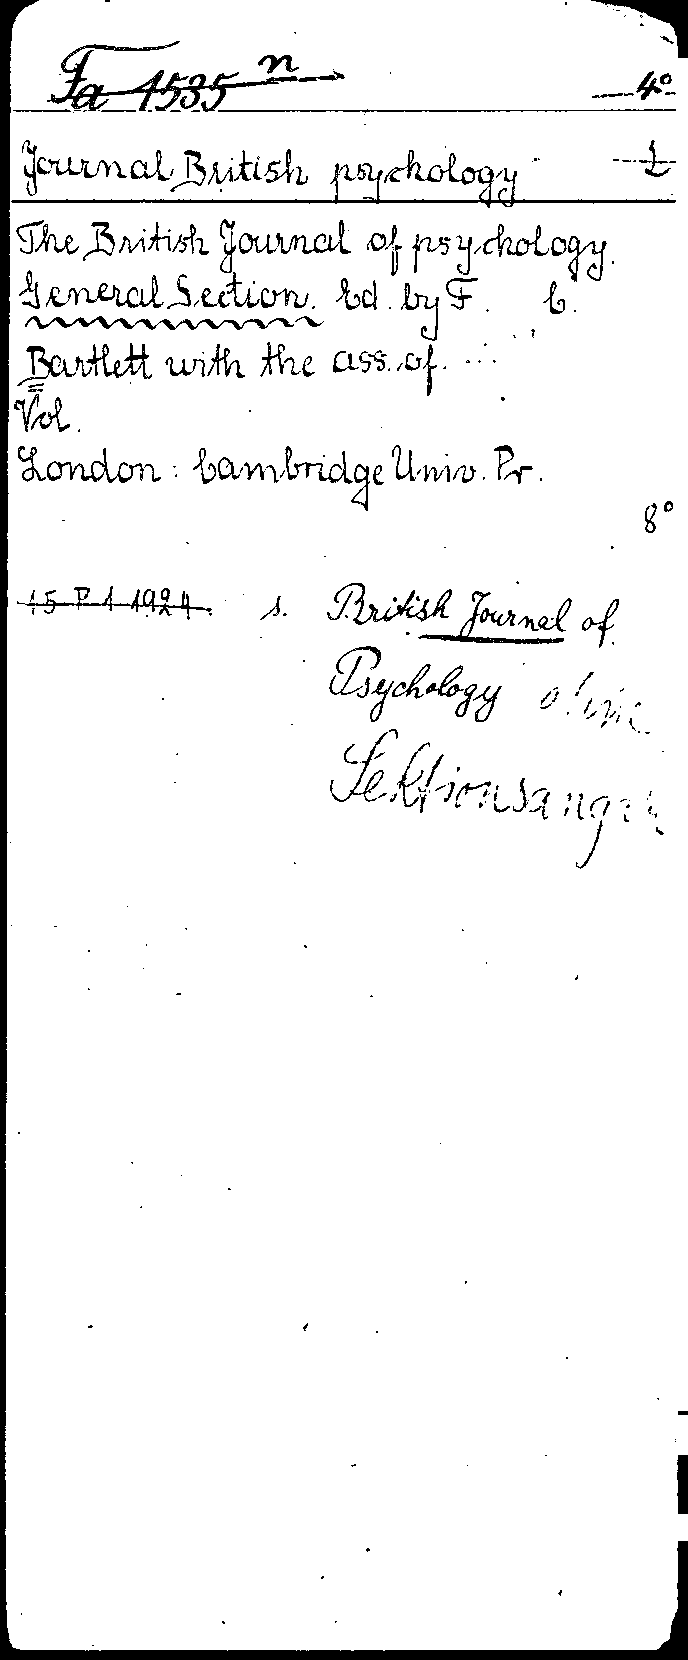 Fa 1535 n 4°
Journal British psychology
The British Journal of psychology.
General Section. Ed. by F. C.
Bartlett with the ass. of. ...
Vol.
London: Cambridge Univ. Pr.
8°
1924. s. British Journal of
Psychology ohne